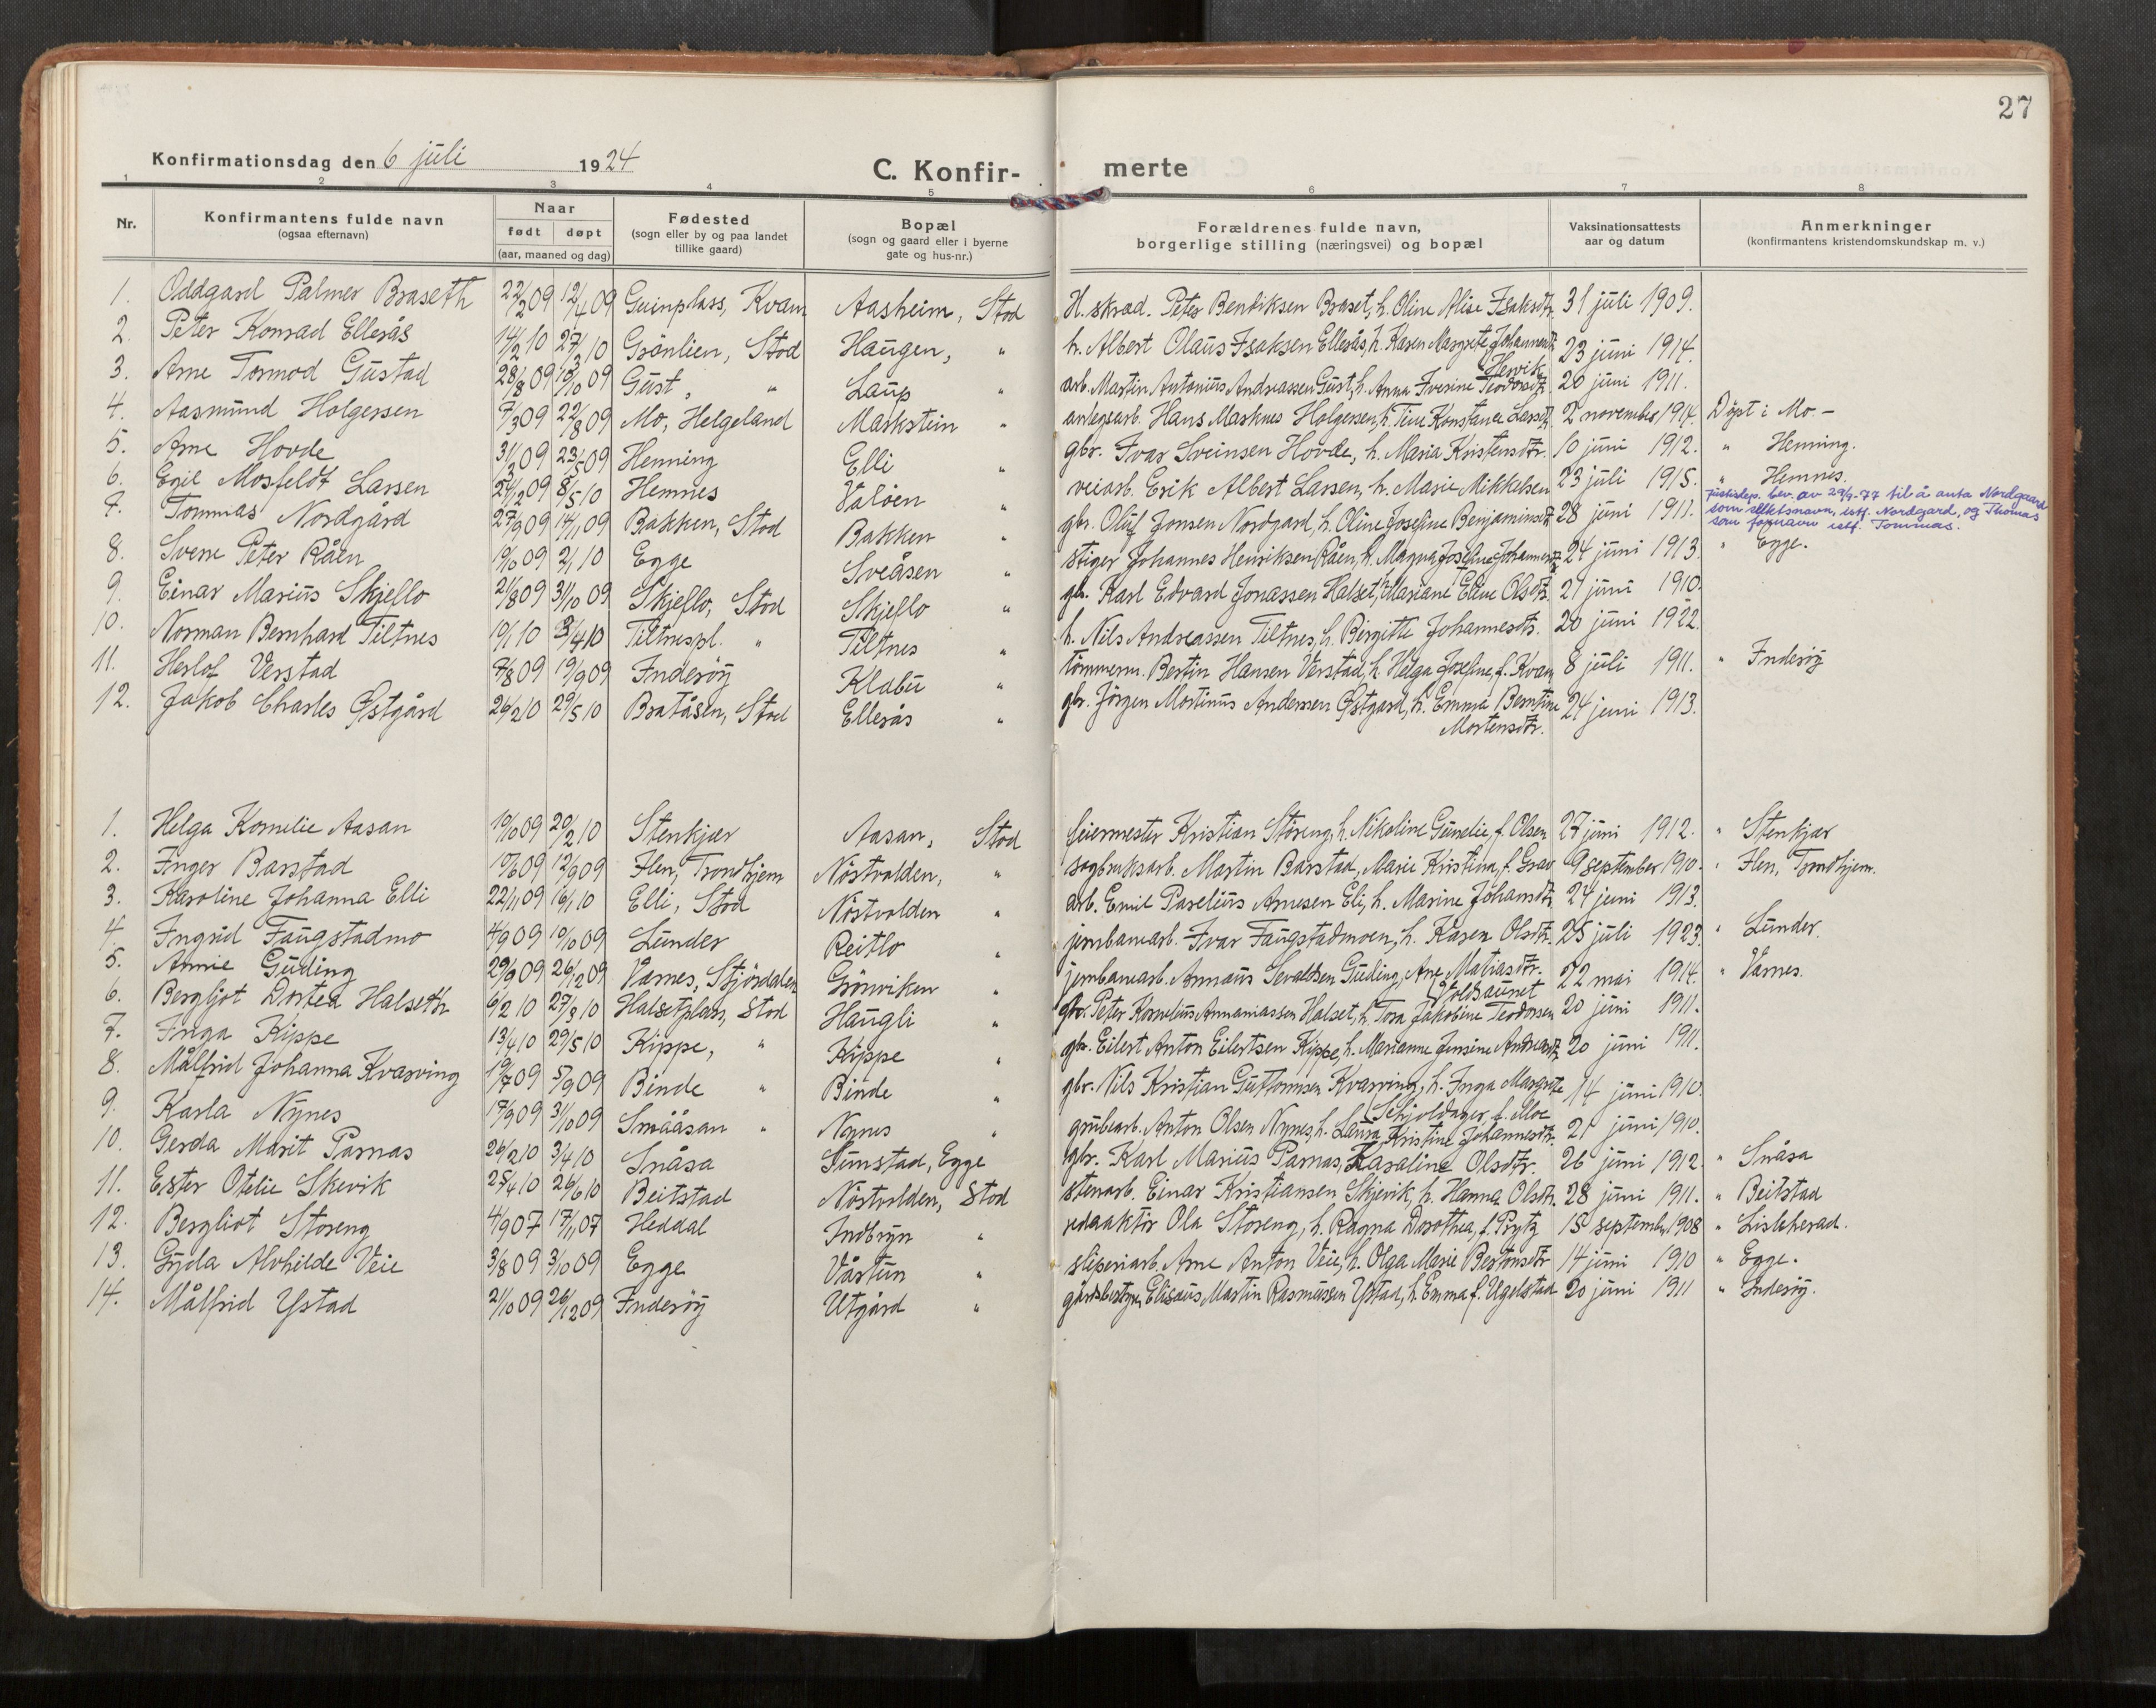 27
Konfirmationsdag den 6 juli 1924
C. Konfir-merte
1 2 3 4 5 6 7 8
Nr. Konfirmantens fulde navn (ogsaa efternavn) Naar født døpt (aar, maaned og dag) Fødested (sogn eller by og paa landet tillike gaard) Bopæl (sogn og gaard eller i byerne gate og hus-nr.) Forældrenes fulde navn, borgerlige stilling (næringsvei) og bopæl Vaksinationsattests aar og datum Anmerkninger (konfirmantens kristendomskundskap m. v.)
1. Oddgard Palmer Braseth 22/2 09 12/4 09 Guinplass, Kvam Aasheim, Stod H. skræd. Peter Bendiksen Braset, h. Oline Alise Isaksdtr. 31 juli 1909.
2. Peter Konrad Ellesås 14/2 10 27/3 10 Grönlien, Stod Haugen, " h. Albert Olaus Isaksen Ellesås, h. Karen Margrete Johannesdtr. 23 juni 1914.
3. Arne Tormod Gustad 28/8 09 10/10 09 Gust, " Laup " arb. Martin Antonius Andreassen Gust, h. Anna Iverine Teodorsdtr. Hervik 20 juni 1911.
4. Aasmund Holgersen 7/3 09 22/8 09 Mo, Helgeland Markstein " anlegsarb. Hans Masknes Holgersen, h. Tine Konstanse Larsdtr. 2 november 1914. Döpt i Mo.-
5. Arne Hovde 31/3 09 23/5 09 Henning Elli " gbr. Ivar Sveinsen Hovde, h. Maria Kristensdtr. 10 juni 1912. " Henning.
6. Egil Mosfeldt Larsen 24/12 09 8/5 10 Hemnes Valöen " veiarb. Erik Albert Larsen, h. Marie Mikkelsen 23 juli 1915. " Hemnes.
7. Tommas Nordgård 27/9 09 14/11 09 Bakken, Stod Bakken " gbr. Oluf Jonsen Nordgard, h. Oline Josefine Benjaminsdtr. 28 juni 1911. Justisdep. bev. av 29/9-77 til å anta Nordgaard
som slektsnavn, istf. Nordgard, og Thomas
som fornavn istf. Tommas.
8. Sverre Peter Råen 19/10 09 2/1 10 Egge Sveåsen " stiger Johannes Henriksen Råen, h. Magna Josefine Johannesdtr. 24 juni 1913. " Egge.
9. Einar Marius Skjeflo 21/8 09 31/10 09 Skjeflo, Stod Skjeflo " gbr. Karl Edvard Jonassen Halset, h. Mariane Eline Olsdtr. 21 juni 1910.
10. Norman Bernhard Tiltnes 19/1 10 3/4 10 Tiltnespl. " Tiltnes " h. Nils Andreassen Tiltnes, h. Birgitte Johannesdtr. 20 juni 1922.
11. Herlof Verstad 7/8 09 19/9 09 Inderöy Klabu " tömmerm. Bertin Hansen Verstad, h. Helga Josefine, f. Kvam 8 juli 1911. " Inderöy
12. Jakob Charles Östgård 26/2 10 29/5 10 Bratåsen, Stod Ellesås " gbr. Jörgen Mortinus Andersen Östgard, h. Emma Berntine Mortensdtr. 24 juni 1913.
1. Helga Kornelie Aasan 19/10 09 20/2 10 Stenkjær Aasan, Stod feiermester Kristian Störeng, h. Nikoline Gunelie, f. Olsen 27 juni 1912. " Stenkjær
2. Inger Barstad 10/6 09 12/9 09 Ilen, Trondhjem Nöstvolden, " sagbruksarb. Martin Barstad, Marie Kristina, f. Grav 9 september 1910. " Ilen, Trondhjem.
3. Karoline Johanna Elli 22/11 09 16/1 10 Elli, Stod Nöstvolden " arb. Emil Paselius Arnesen Eli, h. Marine Johansdtr. 24 juni 1913.
4. Ingrid Faugstadmo 4/9 09 10/10 09 Lunder Reitlo " jernbanearb. Ivar Faugstadmoen, h. Karen Olsdtr. 25 juli 1923. " Lunder.
5. Annie Guding 29/9 09 26/12 09 Værnes, Stjördalen Grönviken " jernbanearb. Annaus Sevaldsen Guding, Ane Matiasdtr. 22 mai 1914. " Værnes.
6. Bergljot Dortea Halseth 6/2 10 27/3 10 Halsetplass, Stod Haugli " gbr. Peter Kornelius Annaniassen Halset, h. Tora Jakobine Teodorsen Voldsaunet 20 juni 1911.
7. Inga Kippe 13/4 10 29/5 10 Kippe, " Kippe " gbr. Eilert Anton Eilertsen Kippe, h. Marianne Jensine Andreasdtr. 20 juni 1911.
8. Målfrid Johanna Kvarving 19/7 09 5/9 09 Binde " Binde " gbr. Nils Kristian Guttormsen Kvarving, h. Inga Margrete Schjoldager, f. Moe 14 juni 1910.
9. Karla Nynes 17/9 09 31/10 09 Smååsan " Nynes " grubearb. Anton Olsen Nynes, h. Laura Kristine Johannesdtr. 21 juni 1910.
10. Gerda Marit Parnas 26/2 10 3/4 10 Snåsa Sunstad, Egge gbr. Karl Marius Parnas, Karaline Olsdtr. 26 juni 1912. " Snåsa
11. Ester Otelie Skevik 25/4 10 26/6 10 Beitstad Nöstvolden, Stod stenarb. Einar Kristiansen Skjevik, h. Hanna Olsdtr. 28 juni 1911. " Beitstad
12. Bergliot Storeng 4/9 07 17/11 07 Heddal Indbryn " redaaktör Ola Störeng, h. Ragna Dorothea, f. Prytz 15 septemb. 1908 " Lisleherad.
13. Gyda Alvhilde Veie 3/8 09 3/10 09 Egge Vårtun " sliperiarb. Arne Anton Veie, h. Olga Marie Bertonsdtr 14 juni 1910 " Egge.
14. Målfrid Ystad 21/10 09 26/12 09 Inderöy Utgård " gårdsbestyrer, Elisæus Martin Rasmussen Ystad, h. Emma f. Ugelstad 20 juni 1911 " Inderöy.